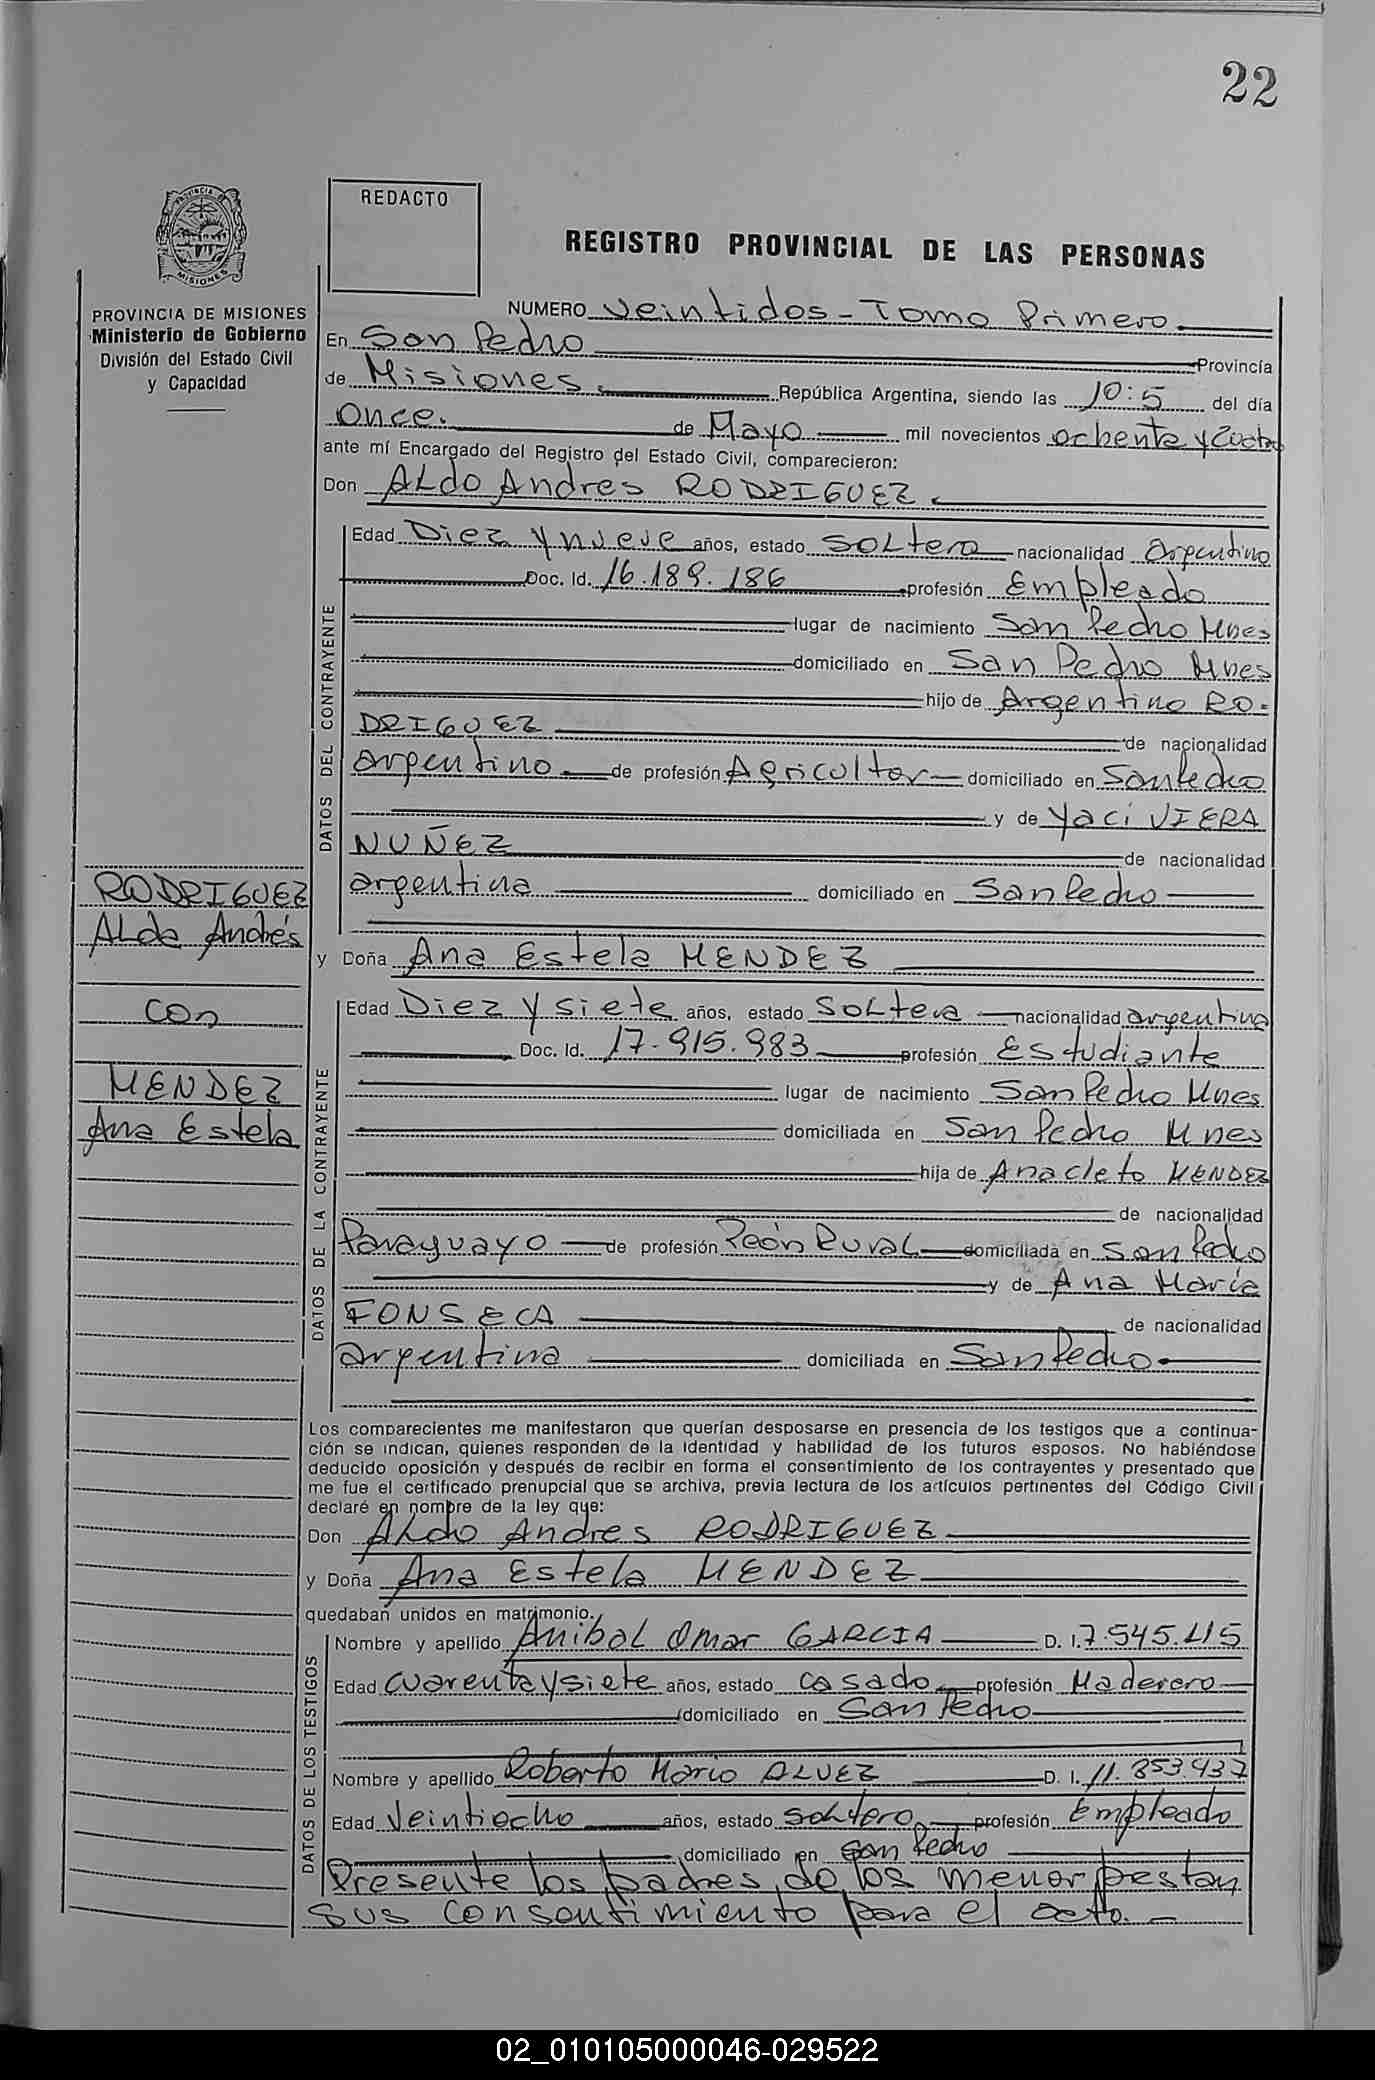 22
REDACTO
PROVINCIA DE MISIONES
REGISTRO PROVINCIAL DE LAS PERSONAS
PROVINCIA DE MISIONES
Ministerio de Gobierno
División del Estado Civil
y Capacidad
NUMERO veintidos - Tomo Primero
En San Pedro Provincia
de Misiones República Argentina, siendo las 10:5 del día
Once. de Mayo mil novecientos ochenta y Cuatro
ante mí Encargado del Registro del Estado Civil, comparecieron:
Don ALdo Andres RODRIGUEZ
DATOS DEL CONTRAYENTE
Edad Diez y nueve años, estado SOLtero nacionalidad argentino
Doc. Id. 16.189.186 profesión Empleado
lugar de nacimiento San Pedro Mnes
domiciliado en San Pedro Mnes
hijo de Argentino RO-
DRIGUEZ de nacionalidad
argentino de profesión Agricultor domiciliado en San Pedro
y de Yaci VIERA
NUÑEZ de nacionalidad
argentina domiciliado en San Pedro
RODRIGUEZ
ALdo Andrés
con
MENDEZ
Ana Estela
y Doña Ana Estela MENDEZ
DATOS DE LA CONTRAYENTE
Edad Diez y siete años, estado SOLtera nacionalidad argentina
Doc. Id. 17.915.983 profesión Estudiante
lugar de nacimiento San Pedro Mnes
domiciliada en San Pedro Mnes
hija de Anacleto MENDEZ
de nacionalidad
Paraguayo de profesión Peón Rural domiciliada en San Pedro
y de Ana María
FONSECA de nacionalidad
argentina domiciliada en San Pedro
Los comparecientes me manifestaron que querían desposarse en presencia de los testigos que a continua-
ción se indican, quienes responden de la identidad y habilidad de los futuros esposos. No habiéndose
deducido oposición y después de recibir en forma el consentimiento de los contrayentes y presentado que
me fue el certificado prenupcial que se archiva, previa lectura de los artículos pertinentes del Código Civil
declaré en nombre de la ley que:
Don ALdo Andres RODRIGUEZ
y Doña Ana Estela MENDEZ
quedaban unidos en matrimonio.
DATOS DE LOS TESTIGOS
Nombre y apellido Anibal Omar GARCIA D. I. 7.545.415
Edad Cuarenta y siete años, estado casado profesión Maderero
domiciliado en San Pedro
Nombre y apellido Roberto Mario ALVEZ D. I. 11.853.437
Edad Veintiocho años, estado soltero profesión Empleado
domiciliado en San Pedro
Presente los padres de los menor prestan
sus consentimiento para el acto.
02_010105000046-029522